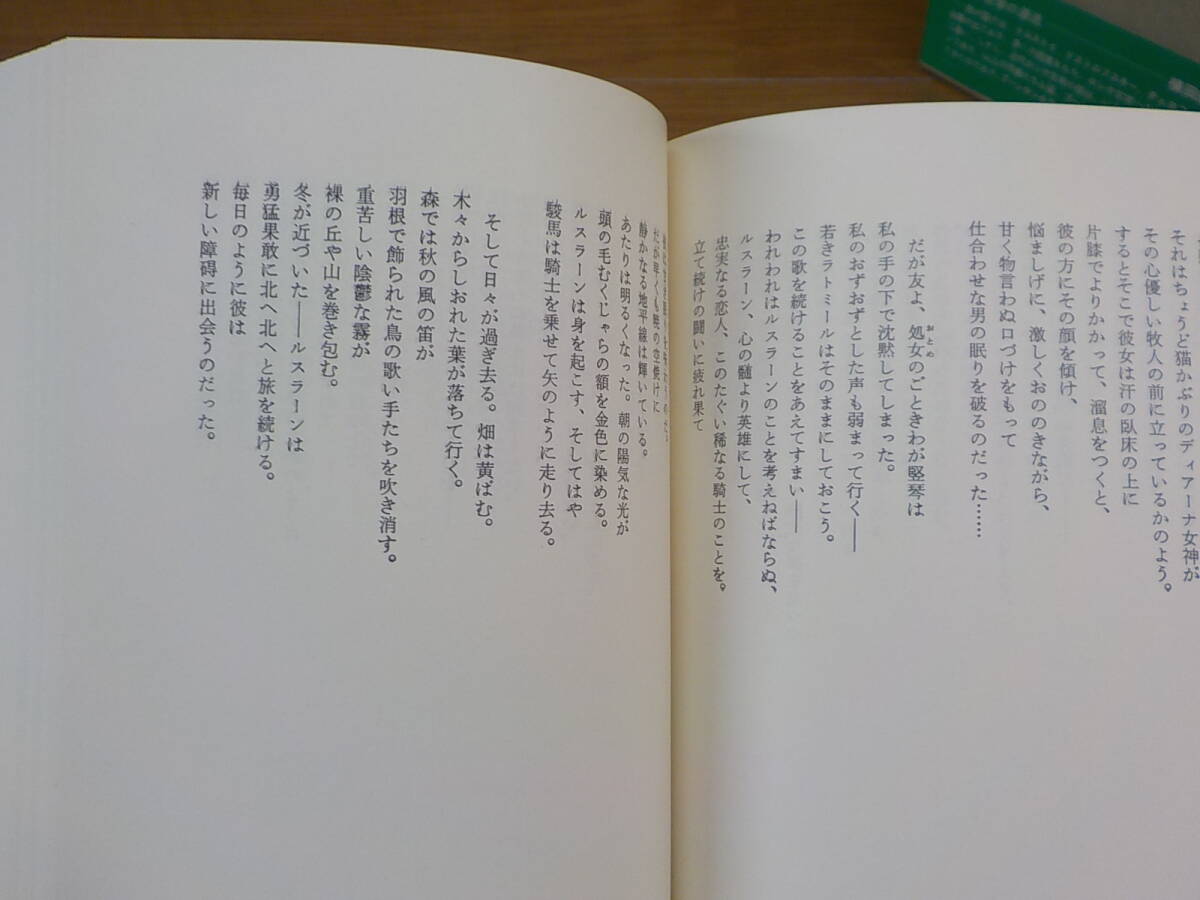 それはちょうど猫かぶりのディアーナ女神が
その心優しい牧人の前に立っているかのよう。
するとそこで彼女は汗の臥床の上に
片膝でよりかかって、溜息をつくと、
彼の方にその顔を傾け、
悩ましげに、激しくおののきながら、
甘く物言わぬ口づけをもって
仕合わせな男の眠りを破るのだった……
だが友よ、処女のごときわが竪琴は
おとめ
私の手の下で沈黙してしまった。
私のおずおずとした声も弱まって行く――
若きラトミールはそのままにしておこう。
この歌を続けることをあえてすまい――
われわれはルスラーンのことを考えねばならぬ、
ルスラーン、心の髄より英雄にして、
忠実なる恋人、このたぐい稀なる騎士のことを。
立て続けの闘いに疲れ果て
だが早くも暁の空焼けに
静かなる地平線は輝いている。
あたりは明るくなった。朝の陽気な光が
頭の毛むくじゃらの額を金色に染める。
ルスラーンは身を起こす、そしてはや
駿馬は騎士を乗せて矢のように走り去る。
そして日々が過ぎ去る。畑は黄ばむ。
木々からしおれた葉が落ちて行く。
森では秋の風の笛が
羽根で飾られた鳥の歌い手たちを吹き消す。
重苦しい陰鬱な霧が
裸の丘や山を巻き包む。
冬が近づいた――ルスラーンは
勇猛果敢に北へ北へと旅を続ける。
毎日のように彼は
新しい障碍に出会うのだった。